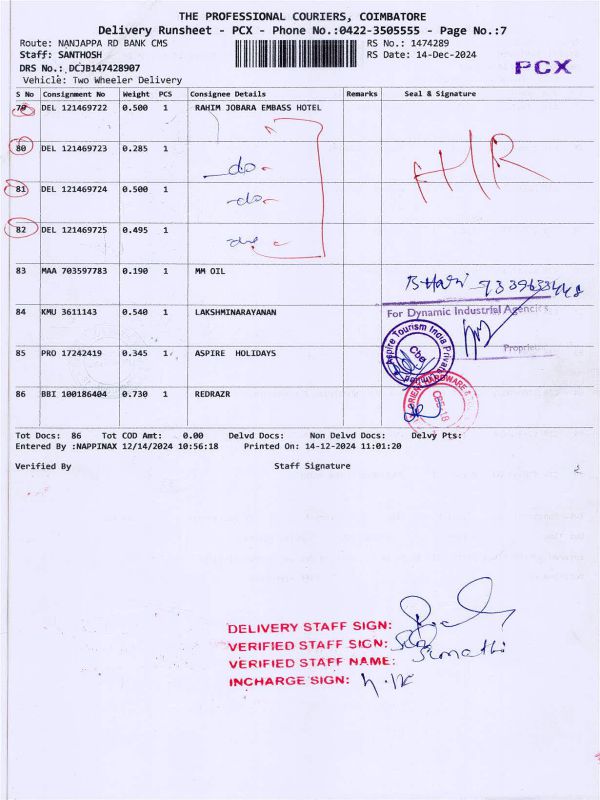 THE PROFESSIONAL COURIERS, COIMBATORE
Delivery Runsheet - PCX - Phone No.:0422-3505555 - Page No.:7
Route: NANJAPPA RD BANK CMS RS No.: 1474289
Staff: SANTHOSH RS Date: 14-Dec-2024
DRS No.: DCJB147428907
PCX
Vehicle: Two Wheeler Delivery
S No Consignment No Weight PCS Consignee Details Remarks Seal & Signature
DEL 121469722 0.500 1 RAHIM JOBARA EMBASS HOTEL
80 DEL 121469723 0.285 1
-do-
HR
81 DEL 121469724 0.500 1
-do-
82 DEL 121469725 0.495 1
83 MAA 703597783 0.190 1 MM OIL
84 KMU 3611143 0.540 1 LAKSHMINARAYANAN
For Dynamic Industrial Agencies
Proprietor
85 PRO 17242419 0.345 1 ASPIRE HOLIDAYS
Aspire Tourism India Private
Cbe
86 BBI 100186404 0.730 1 REDRAZR
HARDWARE
CBE-18
Tot Docs: 86 Tot COD Amt: 0.00 Delvd Docs: Non Delvd Docs: Delvy Pts:
Entered By :NAPPINAX 12/14/2024 10:56:18 Printed On: 14-12-2024 11:01:20
Verified By Staff Signature
DELIVERY STAFF SIGN:
VERIFIED STAFF SIGN:
VERIFIED STAFF NAME: Sumathi
INCHARGE SIGN: